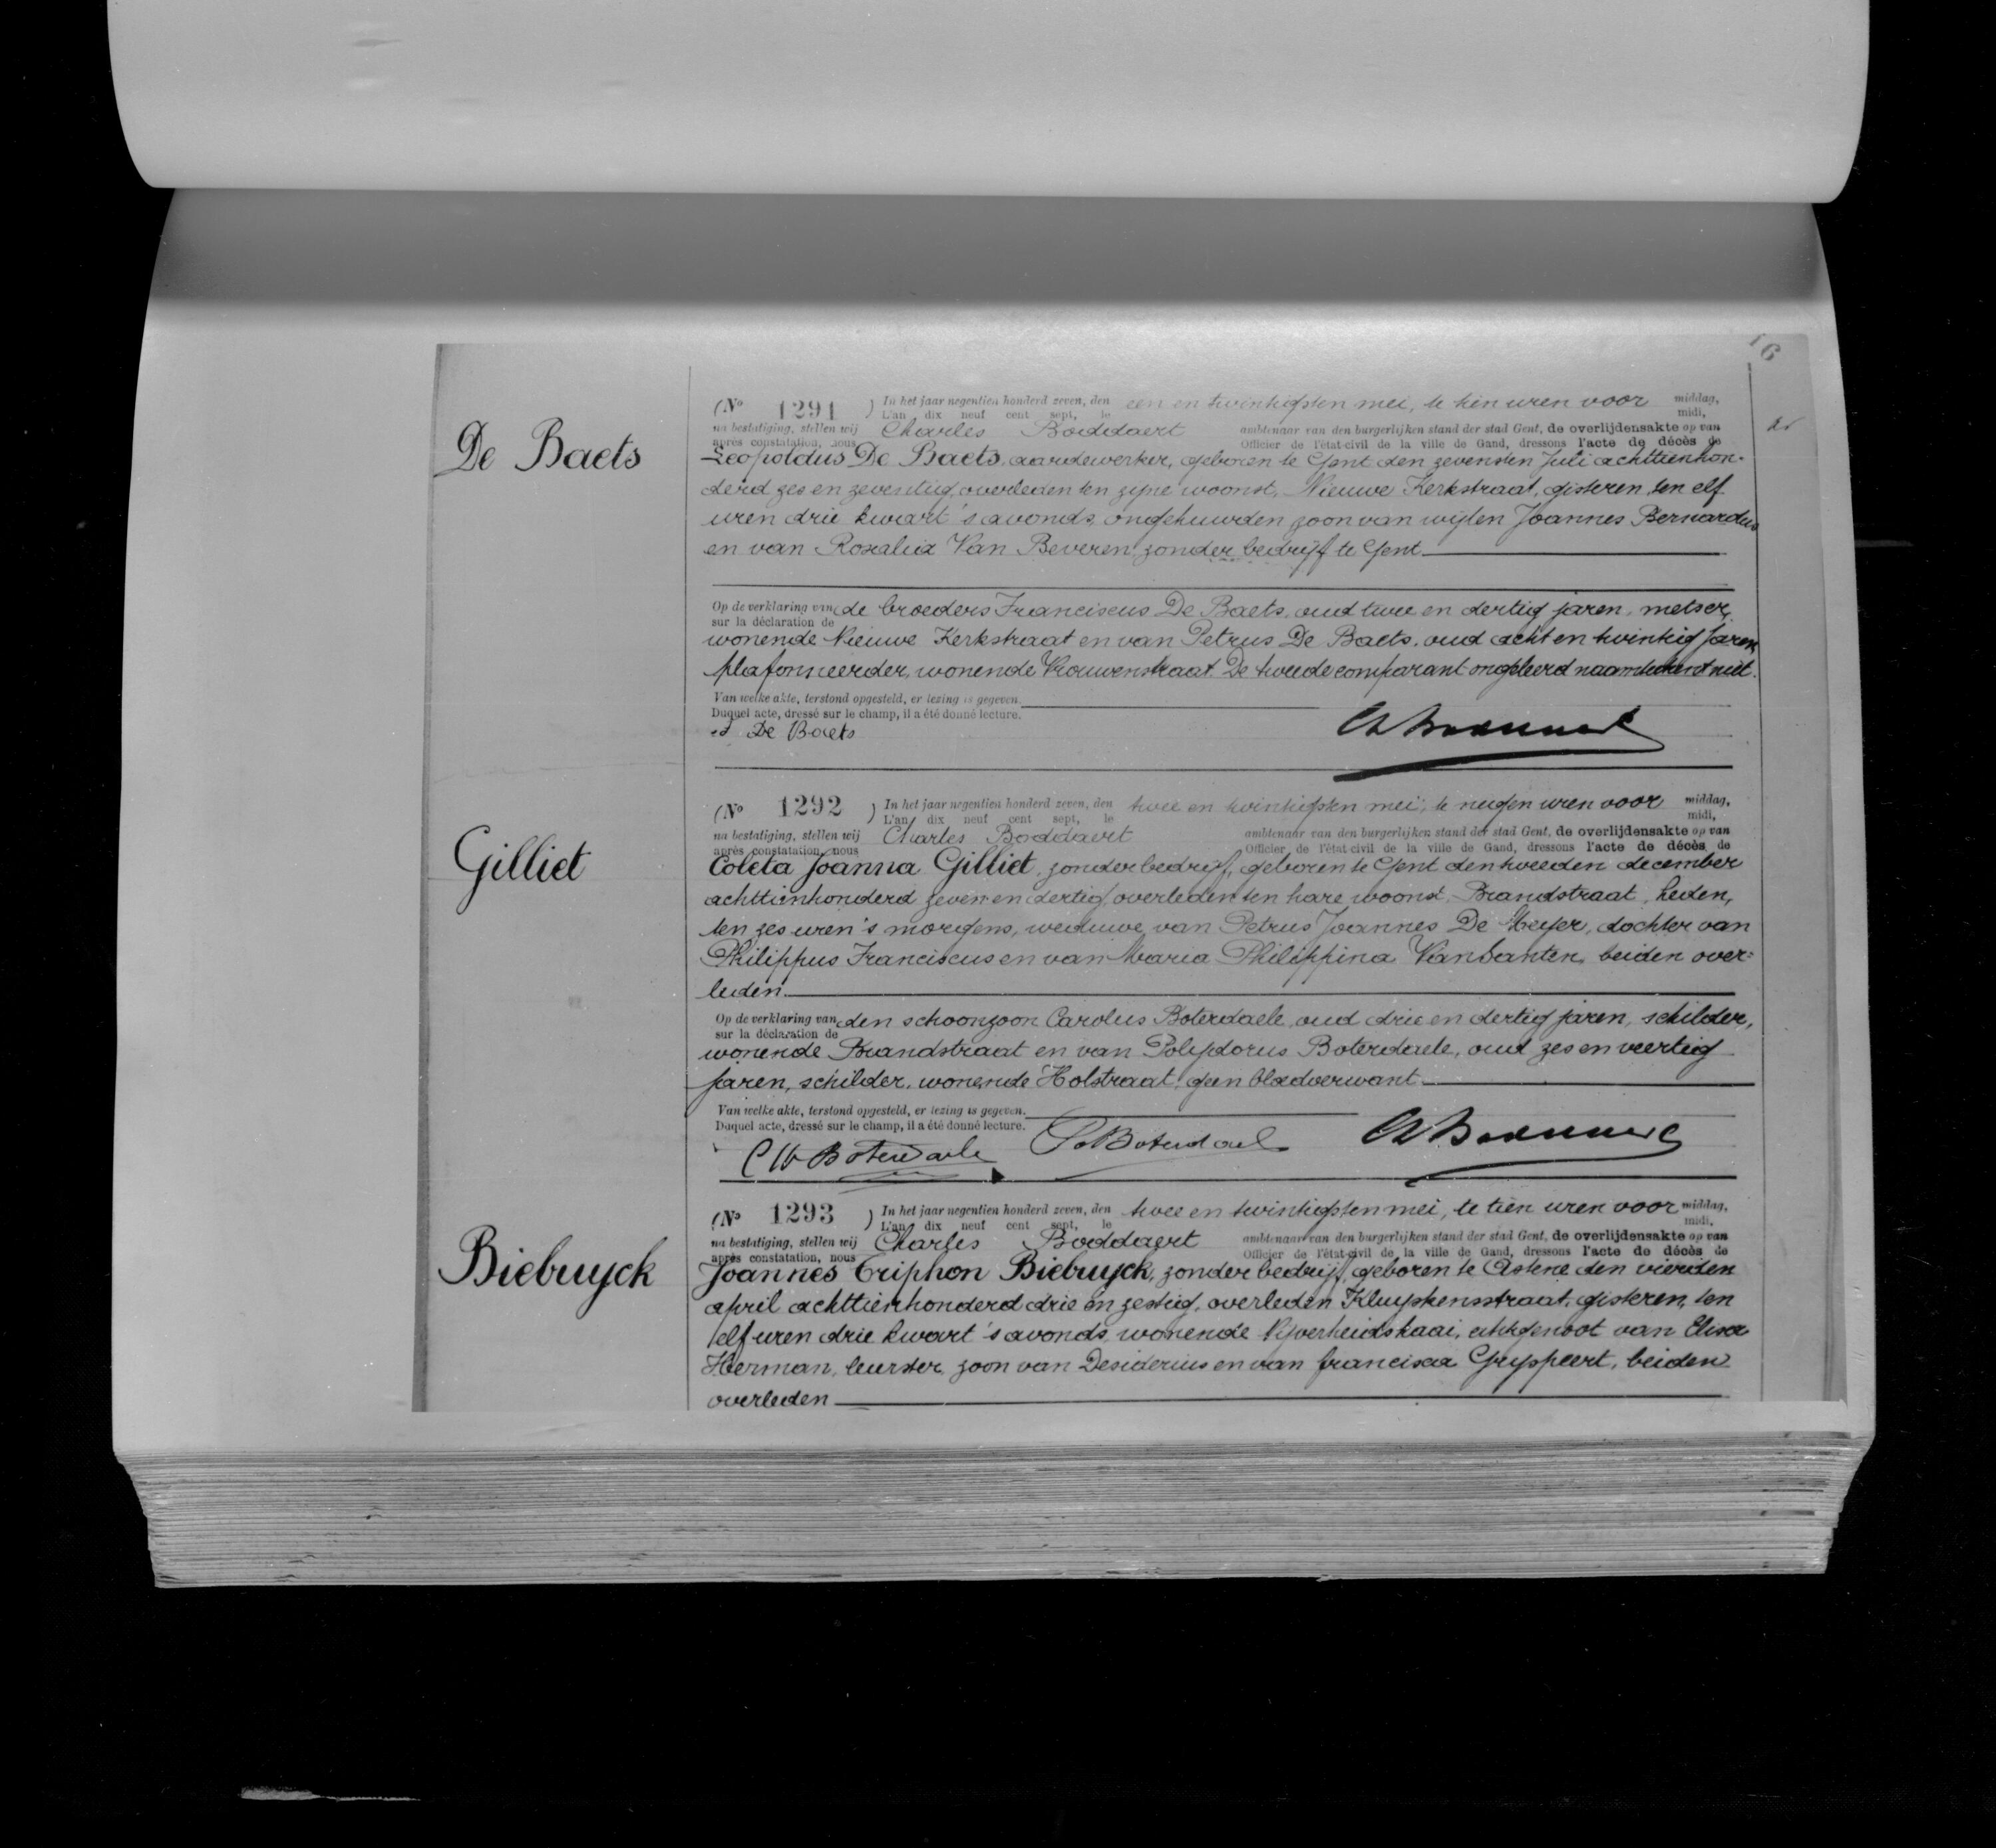 16
De Baets
(No 1291 ) In het jaar negentien honderd zeven, den een en twintigsten mei, te tien uren voor middag,
L'an dix neuf cent sept, le midi,
na bestatiging, stellen wij Charles Boddaert ambtenaar van den burgerlijken stand der stad Gent, de overlijdensakte op van
après constatation, nous Officier de l'état-civil de la ville de Gand, dressons l'acte de décès de
Leopoldus De Baets, aardewerker, geboren te Gent den zevensten Juli achttienhon-
derd zes en zeventig, overleden ten zijne woonst, Nieuwe Kerkstraat, gisteren, ten elf
uren drie kwart 's avonds, ongehuwden zoon van wijlen Joannes Bernardus
en van Rosalia Van Beveren, zonder bedrijf te Gent
Op de verklaring van de broeders Franciscus De Baets, oud twee en dertig jaren, metser,
sur la déclaration de
wonende Nieuwe Kerkstraat en van Petrus De Baets, oud acht en twintig jaren,
plafonneerder, wonende Vrouwenstraat. De tweede comparant ongeleerd naamteekent niet.
Van welke akte, terstond opgesteld, er lezing is gegeven.
Duquel acte, dressé sur le champ, il a été donné lecture.
De Baets
Gilliet
(No 1292 ) In het jaar negentien honderd zeven, den twee en twintigsten mei, te negen uren voor middag,
L'an dix neuf cent sept, le midi,
na bestatiging, stellen wij Charles Boddaert ambtenaar van den burgerlijken stand der stad Gent, de overlijdensakte op van
après constatation, nous Officier de l'état-civil de la ville de Gand, dressons l'acte de décès de
Coleta Joanna Gilliet, zonder bedrijf, geboren te Gent den tweeden december
achttienhonderd zeven en dertig, overleden ten hare woonst, Brandstraat, heden,
ten zes uren 's morgens, weduwe van Petrus Joannes De Meyer, dochter van
Philippus Franciscus en van Maria Philippina Vansanten, beiden over=
leden
Op de verklaring van den schoonzoon Carolus Boterdaele, oud drie en dertig jaren, schilder,
sur la déclaration de
wonende Brandstraat en van Polydorus Boterdaele, oud zes en veertig
jaren, schilder, wonende Holstraat, geen bloedverwant
Van welke akte, terstond opgesteld, er lezing is gegeven.
Duquel acte, dressé sur le champ, il a été donné lecture.
Boterdaele Boterdaele
Biebuyck
(No 1293 ) In het jaar negentien honderd zeven, den twee en twintigsten mei, te tien uren voor middag,
L'an dix neuf cent sept, le midi,
na bestatiging, stellen wij Charles Boddaert ambtenaar van den burgerlijken stand der stad Gent, de overlijdensakte op van
après constatation, nous Officier de l'état-civil de la ville de Gand, dressons l'acte de décès de
Joannes Triphon Biebuyck, zonder bedrijf, geboren te Astene den vierden
april achttienhonderd drie en zestig, overleden Kluyskensstraat, gisteren, ten
elf uren drie kwart 's avonds, wonende Nijverheidskaai, echtgenoot van Elisa
Herman, leurster, zoon van Desiderius en van francisca Gryspeert, beiden
overleden